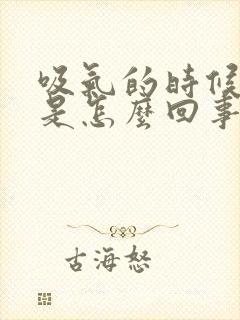 吸氣的時候
是怎麼回事
古海怒